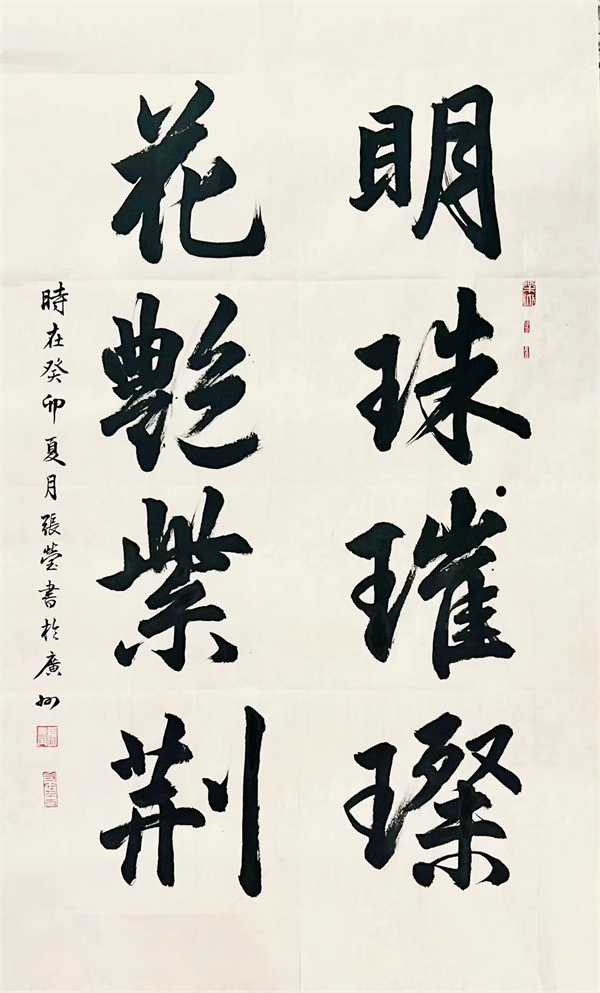 明珠璀璨
花艷紫荆
時在癸卯夏月張瑩書於廣州